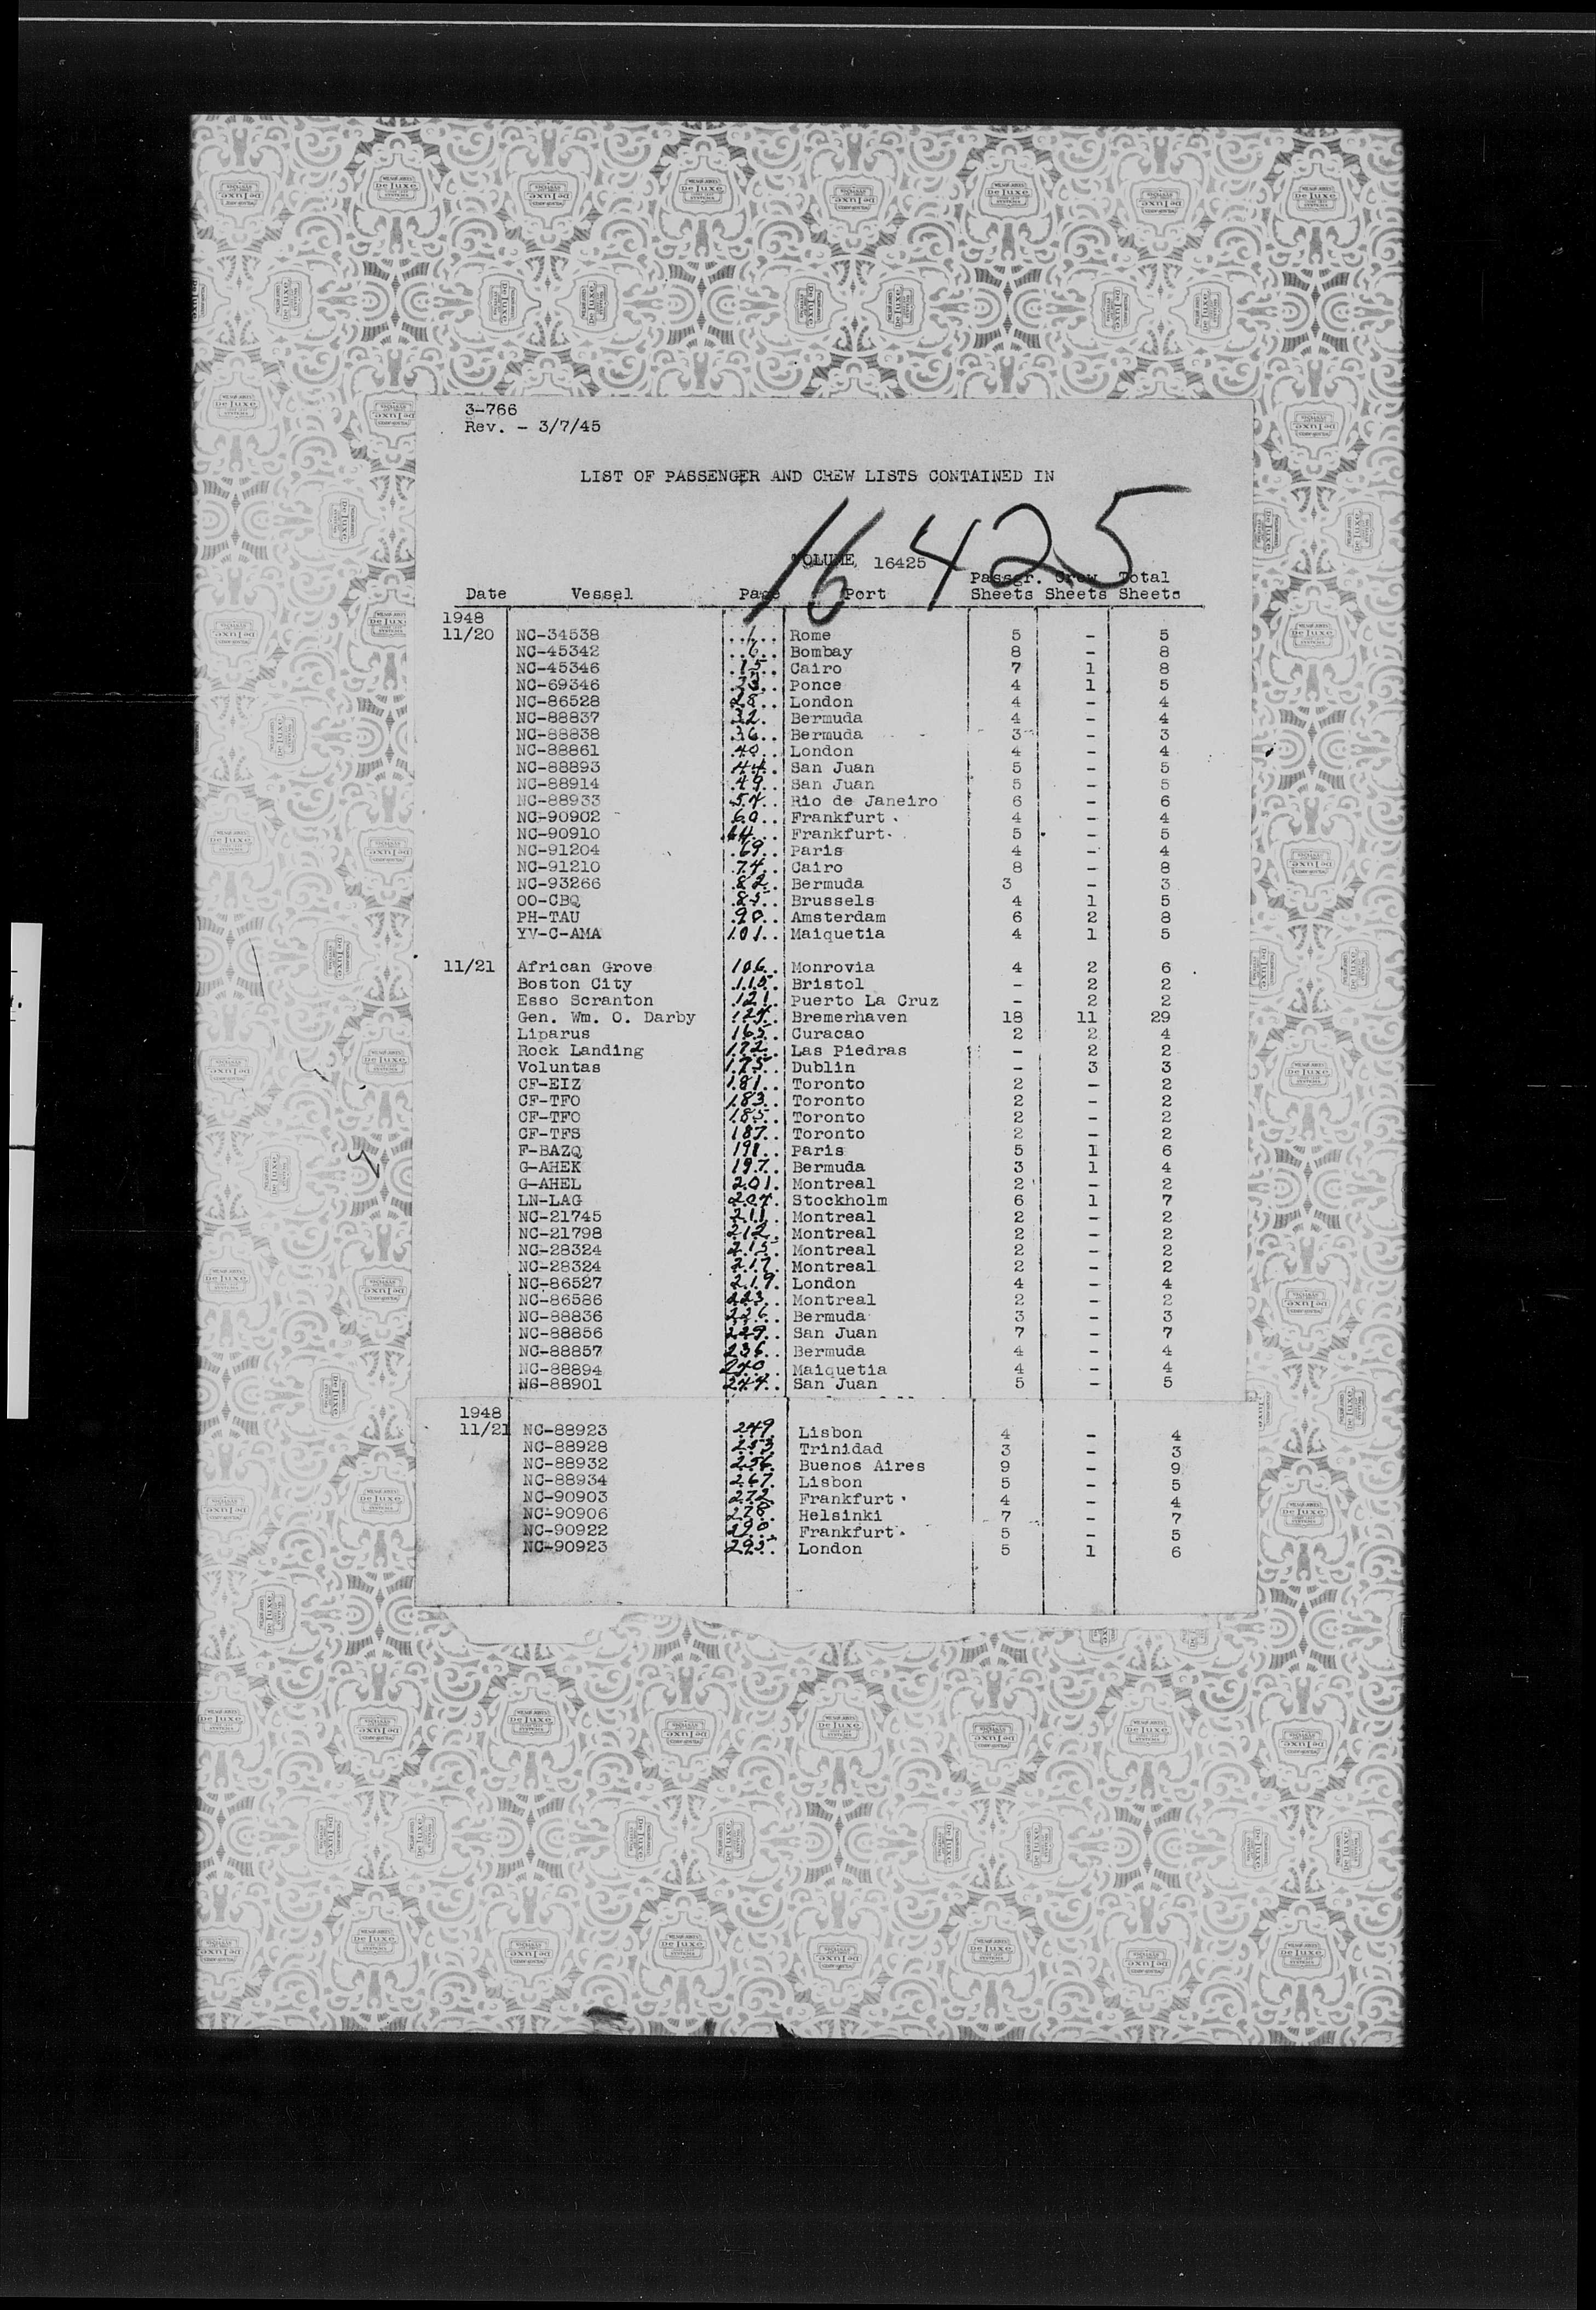 3-766
Rev. - 3/7/45
LIST OF PASSENGER AND CREW LISTS CONTAINED IN
16425
VOLUME 16425
Passgr. Crew Total
Date Vessel Page Port Sheets Sheets Sheets
1948
11/20 NC-34538 1 Rome 5 - 5
NC-45342 6 Bombay 8 - 8
NC-45346 15 Cairo 7 1 8
NC-69346 23 Ponce 4 1 5
NC-86528 28 London 4 - 4
NC-88837 32 Bermuda 4 - 4
NC-88838 36 Bermuda 3 - 3
NC-88861 40 London 4 - 4
NC-88893 44 San Juan 5 - 5
NC-88914 49 San Juan 5 - 5
NC-88933 54 Rio de Janeiro 6 - 6
NC-90902 60 Frankfurt 4 - 4
NC-90910 64 Frankfurt 5 - 5
NC-91204 69 Paris 4 - 4
NC-91210 74 Cairo 8 - 8
NC-93266 82 Bermuda 3 - 3
OO-CBQ 85 Brussels 4 1 5
PH-TAU 90 Amsterdam 6 2 8
YV-C-AMA 101 Maiquetia 4 1 5
11/21 African Grove 106 Monrovia 4 2 6
Boston City 115 Bristol - 2 2
Esso Scranton 121 Puerto La Cruz - 2 2
Gen. Wm. O. Darby 124 Bremerhaven 18 11 29
Liparus 165 Curacao 2 2 4
Rock Landing 172 Las Piedras - 2 2
Voluntas 175 Dublin - 3 3
CF-EIZ 181 Toronto 2 - 2
CF-TFO 183 Toronto 2 - 2
CF-TFO 185 Toronto 2 - 2
CF-TFS 187 Toronto 2 - 2
F-BAZQ 191 Paris 5 1 6
G-AHEK 197 Bermuda 3 1 4
G-AHEL 201 Montreal 2 - 2
LN-LAG 204 Stockholm 6 1 7
NC-21745 211 Montreal 2 - 2
NC-21798 212 Montreal 2 - 2
NC-28324 215 Montreal 2 - 2
NC-28324 217 Montreal 2 - 2
NC-86527 219 London 4 - 4
NC-86586 223 Montreal 2 - 2
NC-88836 226 Bermuda 3 - 3
NC-88856 229 San Juan 7 - 7
NC-88857 236 Bermuda 4 - 4
NC-88894 240 Maiquetia 4 - 4
NC-88901 244 San Juan 5 - 5
1948
11/21 NC-88923 249 Lisbon 4 - 4
NC-88928 253 Trinidad 3 - 3
NC-88932 256 Buenos Aires 9 - 9
NC-88934 267 Lisbon 5 - 5
NC-90903 272 Frankfurt 4 - 4
NC-90906 278 Helsinki 7 - 7
NC-90922 290 Frankfurt 5 - 5
NC-90923 295 London 5 1 6